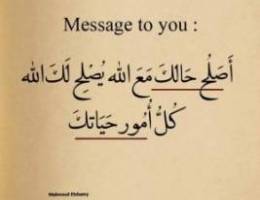 Message to you :
أَصلُح حَالكَ مَعَ الله يُصْلِح لَكَ الله
كُلُّ أُمور حَيَاتكَ
Mahmoud Elshamy